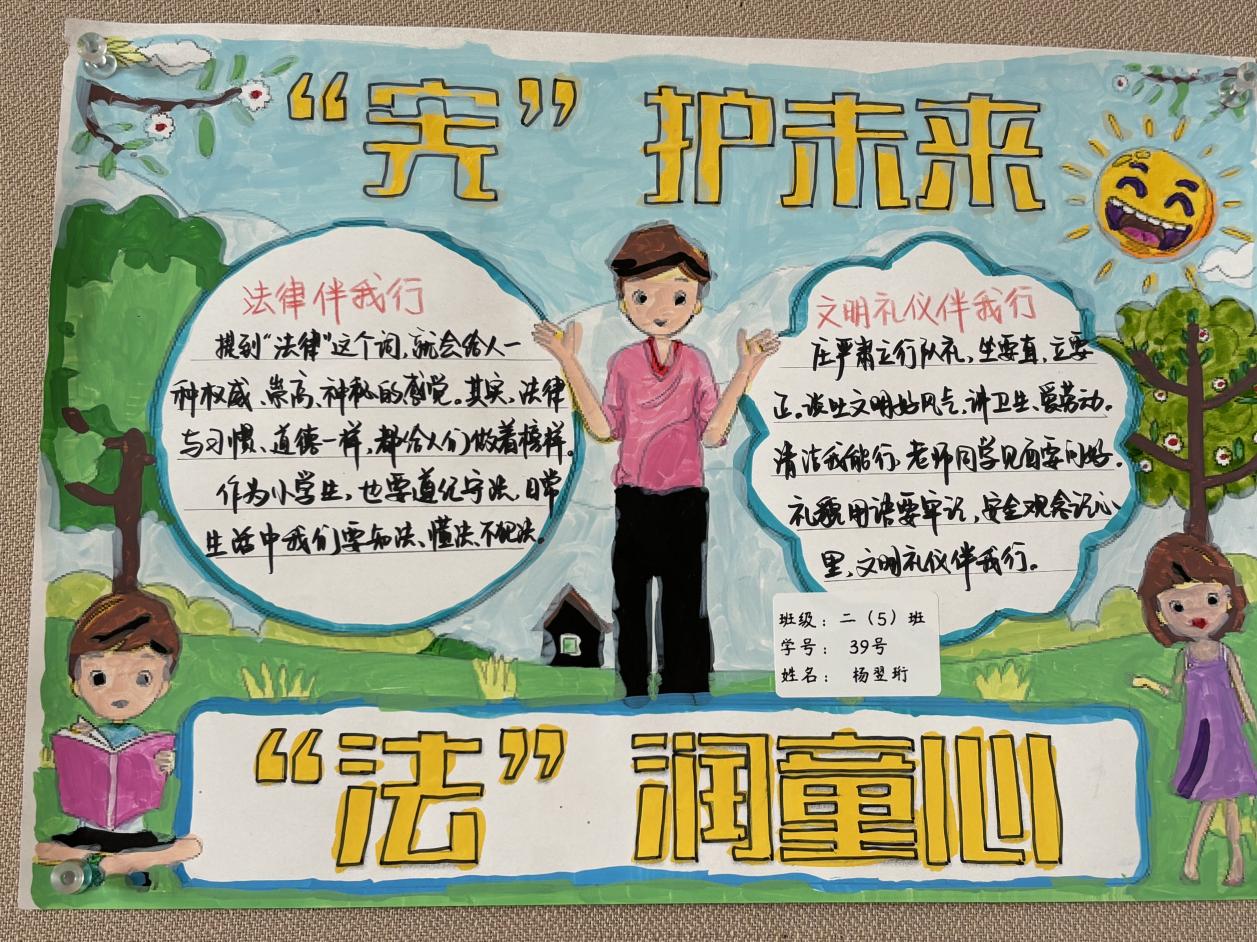 “宪”护未来
法律伴我行
提到“法律”这个词,就会给人一
种权威、崇高、神秘的感觉。其实,法律
与习惯、道德一样,都给人们做着榜样。
作为小学生,也要遵纪守法,日常
生活中我们要知法、懂法、不犯法。
文明礼仪伴我行
庄严肃立行队礼,坐要直,立要
正,谈吐文明好风气,讲卫生、爱劳动。
清洁我能行,老师同学见面要问好。
礼貌用语要牢记,安全观念记心
里,文明礼仪伴我行。
班级:二(5)班
学号:39号
姓名:杨翌珩
“法”润童心